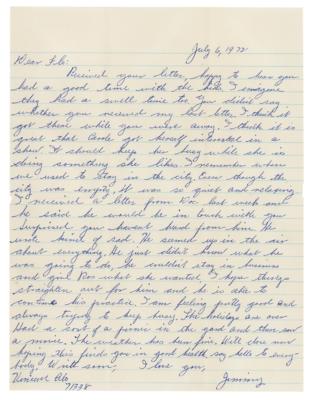 July 6, 1972
Dear Flo:
Received your letter, happy to hear you
had a good time with the kids. I imagine
they had a swell time too. You didn't say
whether you received my last letter. I think it
got there while you were away. I think it is
great that Carole got herself interested in a
show. It should keep her busy while she is
doing something she likes. I remember when
we used to stay in the city. Even though the
city was empty, it was so quiet and relaxing.
I received a letter from last week and
he said he would be in touch with you.
Surprised you haven't heard from him. He
wrote kind of sad. He seemed up in the air
about everything. He just didn't know what he
was going to do, he couldn't stay in
and give what she wanted. I hope things
straighten out for him and he is able to
continue his practice. I am feeling pretty good and
always trying to keep busy. The holidays are over
Had a sort of a picnic in the yard and then saw
a movie. The weather has been fine. Will close now
hoping this finds you in good health, say hello to every-
body. Write soon, I love you,
Jimmy